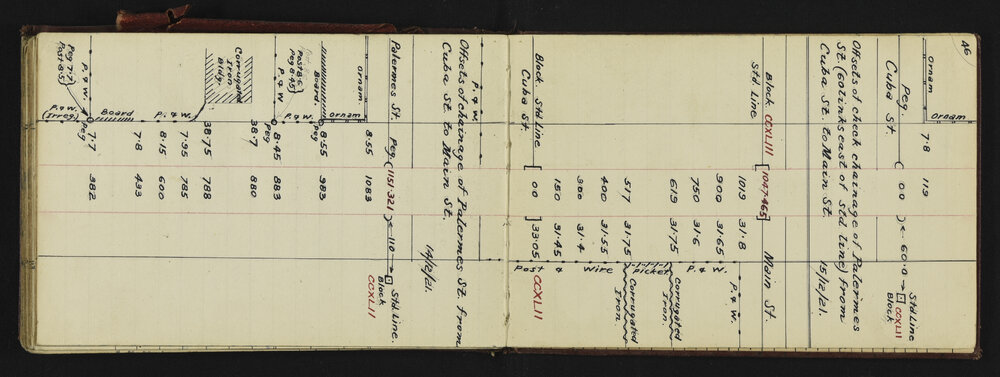 46
Ornam
Ornam
7.8 119
Peg. ( 00 ) 60.0 Std Line
Cuba St. CCXLII
Block
Offsets of check chainage of Palermes
St. (60 links east of Std line) from
Cuba St. to Main St. 15/12/21.
Block CCXLIII [1047.465] Main St.
Std Line
1019 31.8 P. & W.
900 31.65
750 31.6 P. & W.
619 31.75 Corrugated
Iron.
picket
517 31.75 Corrugated
Iron.
400 31.55 Wire
300 31.4
150 31.45 Post &
Block Std Line [ 00 ] 33.05 CCXLII
Cuba St.
P. & W.
Offsets of chainage of Palermes St. from
Cuba St. to Main St. 14/12/21.
Palermes St. Peg. (1151.321) 110 Std Line.
Block
CCXLII
Ornam. 8.55 1083
Ornam
Board. Peg 8.55 983
Post 8.5
Peg 8.45
P. & W.
P. & W. Peg 8.45 883
38.7 880
Corrugated
Iron
Bldg.
38.75 788
7.95 785
P. & W. 8.15 600
7.8 433
Board
P. & W. Peg 7.7 382
Peg 7.7
Post 8.55
P. & W.
(Irreg.)